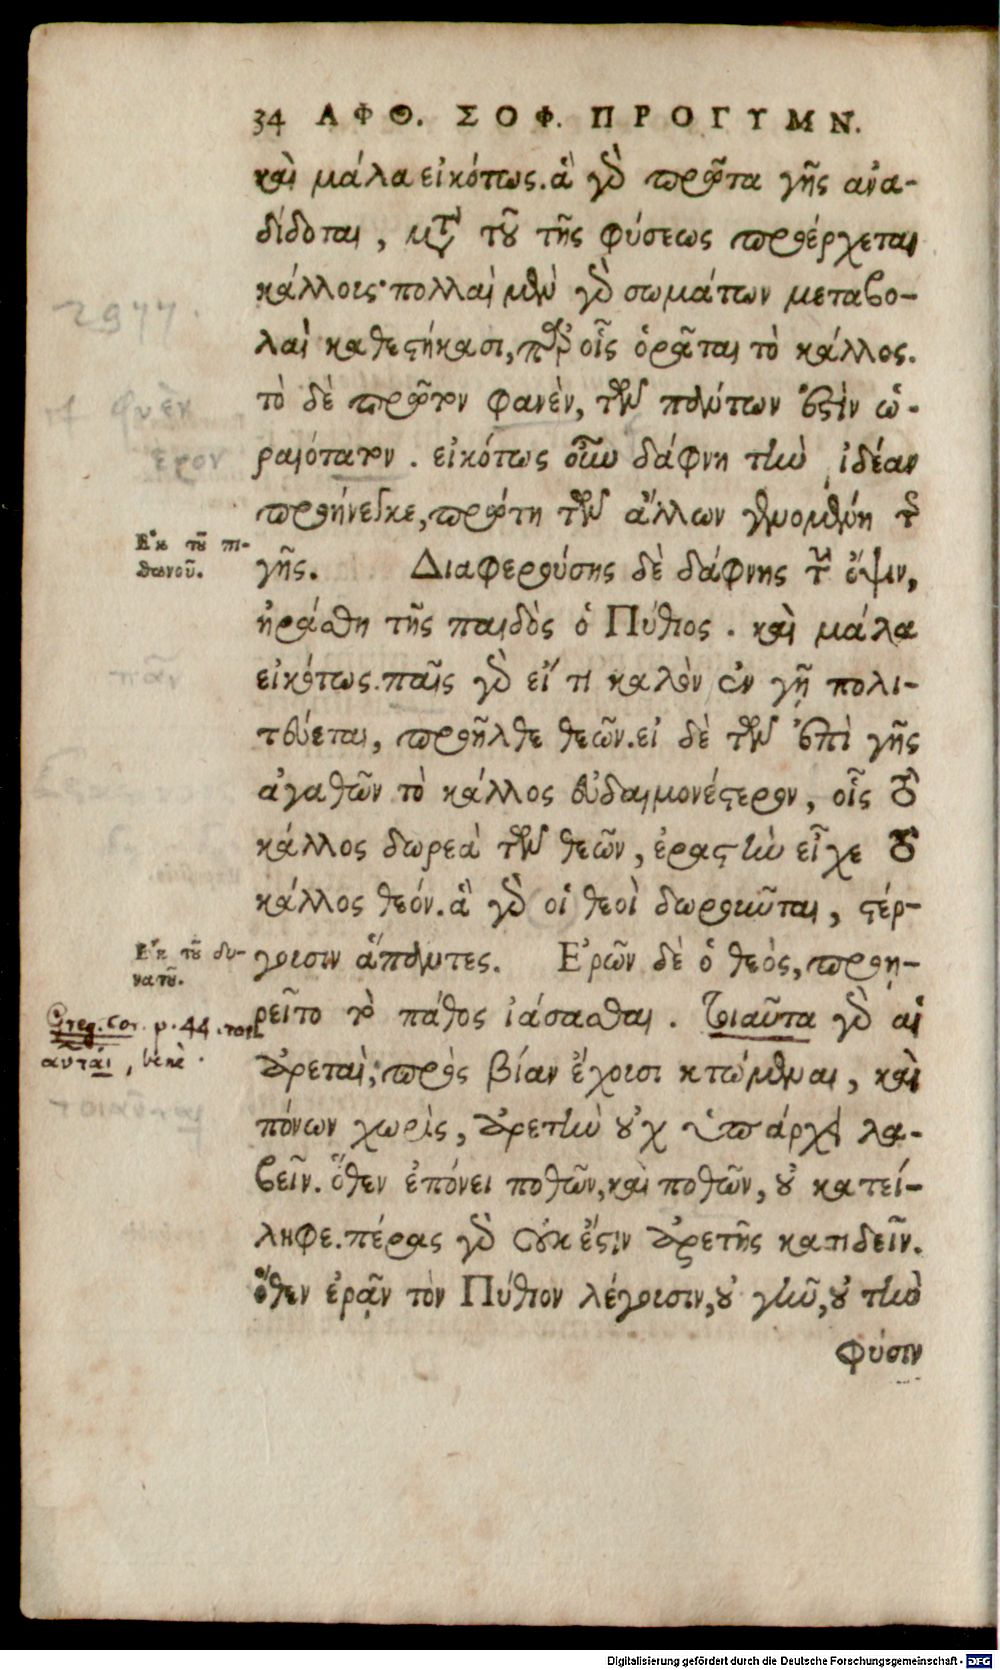 34 ΑΦΘ. ΣΟΦ. ΠΡΟΓΥΜΝ.
καὶ μάλα εἰκότως. ἃ γὰρ πρῶτα γῆς ἀνα-
δίδοται, μετὰ τοῦ τῆς φύσεως προέρχεται
κάλλους· πολλαὶ μὲν γὰρ σωμάτων μεταβο-
λαὶ καθεστήκασι, παρ' οἷς ὁρᾶται τὸ κάλλος.
τὸ δὲ πρῶτον φανὲν, τῶν πάντων ἐστὶν ὡ-
ραιότατον. εἰκότως οὖν δάφνη τὴν ἰδέαν
προήνεγκε, πρώτη τῶν ἄλλων γενομένη τῆς
Ἐκ τοῦ πι-
θανοῦ.
γῆς. Διαφερούσης δὲ δάφνης τὴν ὄψιν,
ἠράσθη τῆς παιδὸς ὁ Πύθιος. καὶ μάλα
εἰκότως. παῖς γὰρ εἴ τι καλὸν ἐν γῇ πολι-
τεύεται, προῆλθε θεῶν. εἰ δὲ τῶν ἐπὶ γῆς
ἀγαθῶν τὸ κάλλος εὐδαιμονέστερον, οἷς τὸ
κάλλος δωρεὰ τῶν θεῶν, ἐραστὴν εἶχε τὸ
κάλλος θεόν. ἃ γὰρ οἱ θεοὶ δωροῦνται, στέρ-
Ἐκ τοῦ δυ-
νατοῦ.
γουσιν ἅπαντες. Ἐρῶν δὲ ὁ θεὸς, προῃ-
Greg. Cor. p. 44.
αυται, bene.
ρεῖτο τὸ πάθος ἰάσασθαι. Τοιαῦτα γὰρ αἱ
ἀρεταὶ; πρὸς βίαν ἔχουσι κτώμεναι, καὶ
πόνων χωρὶς, ἀρετὴν οὐχ ὑπάρχει λα-
βεῖν. ὅθεν ἐπόνει ποθῶν, καὶ ποθῶν, οὐ κατεί-
ληφε. πέρας γὰρ οὐκ ἔστιν ἀρετῆς κατιδεῖν.
ὅθεν ἐρᾷν τὸν Πύθιον λέγουσιν, οὐ γὴν, οὐ τὴν
φύσιν
Digitalisierung gefördert durch die Deutsche Forschungsgemeinschaft - DFG